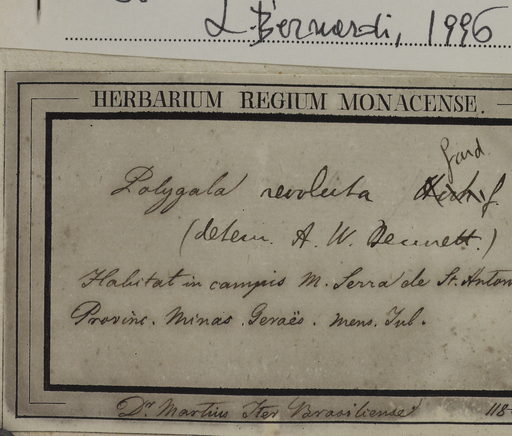 L. Bernardi, 1996
HERBARIUM REGIUM MONACENSE.
Gard
Polygala revoluta
(determ. A. W. Bennett.)
Habitat in campis M. Serra de St. Anton
Provinc. Minas Geraës. mens. Jul.
Dr. Martius Iter Brasiliense
118